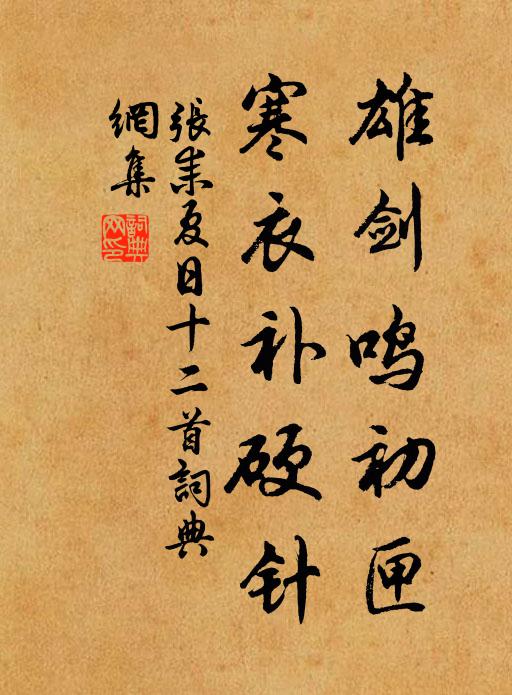 雄剑鸣初匣
寒衣补硬针
張耒夏日十二首詞典
網集
詞典网印